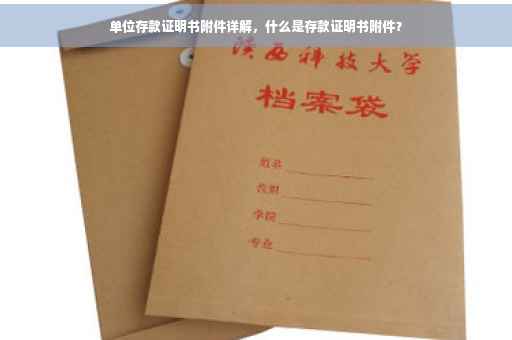 单位存款证明书附件详解，什么是存款证明书附件？
陕西科技大学
档案袋
姓名
学院
专业